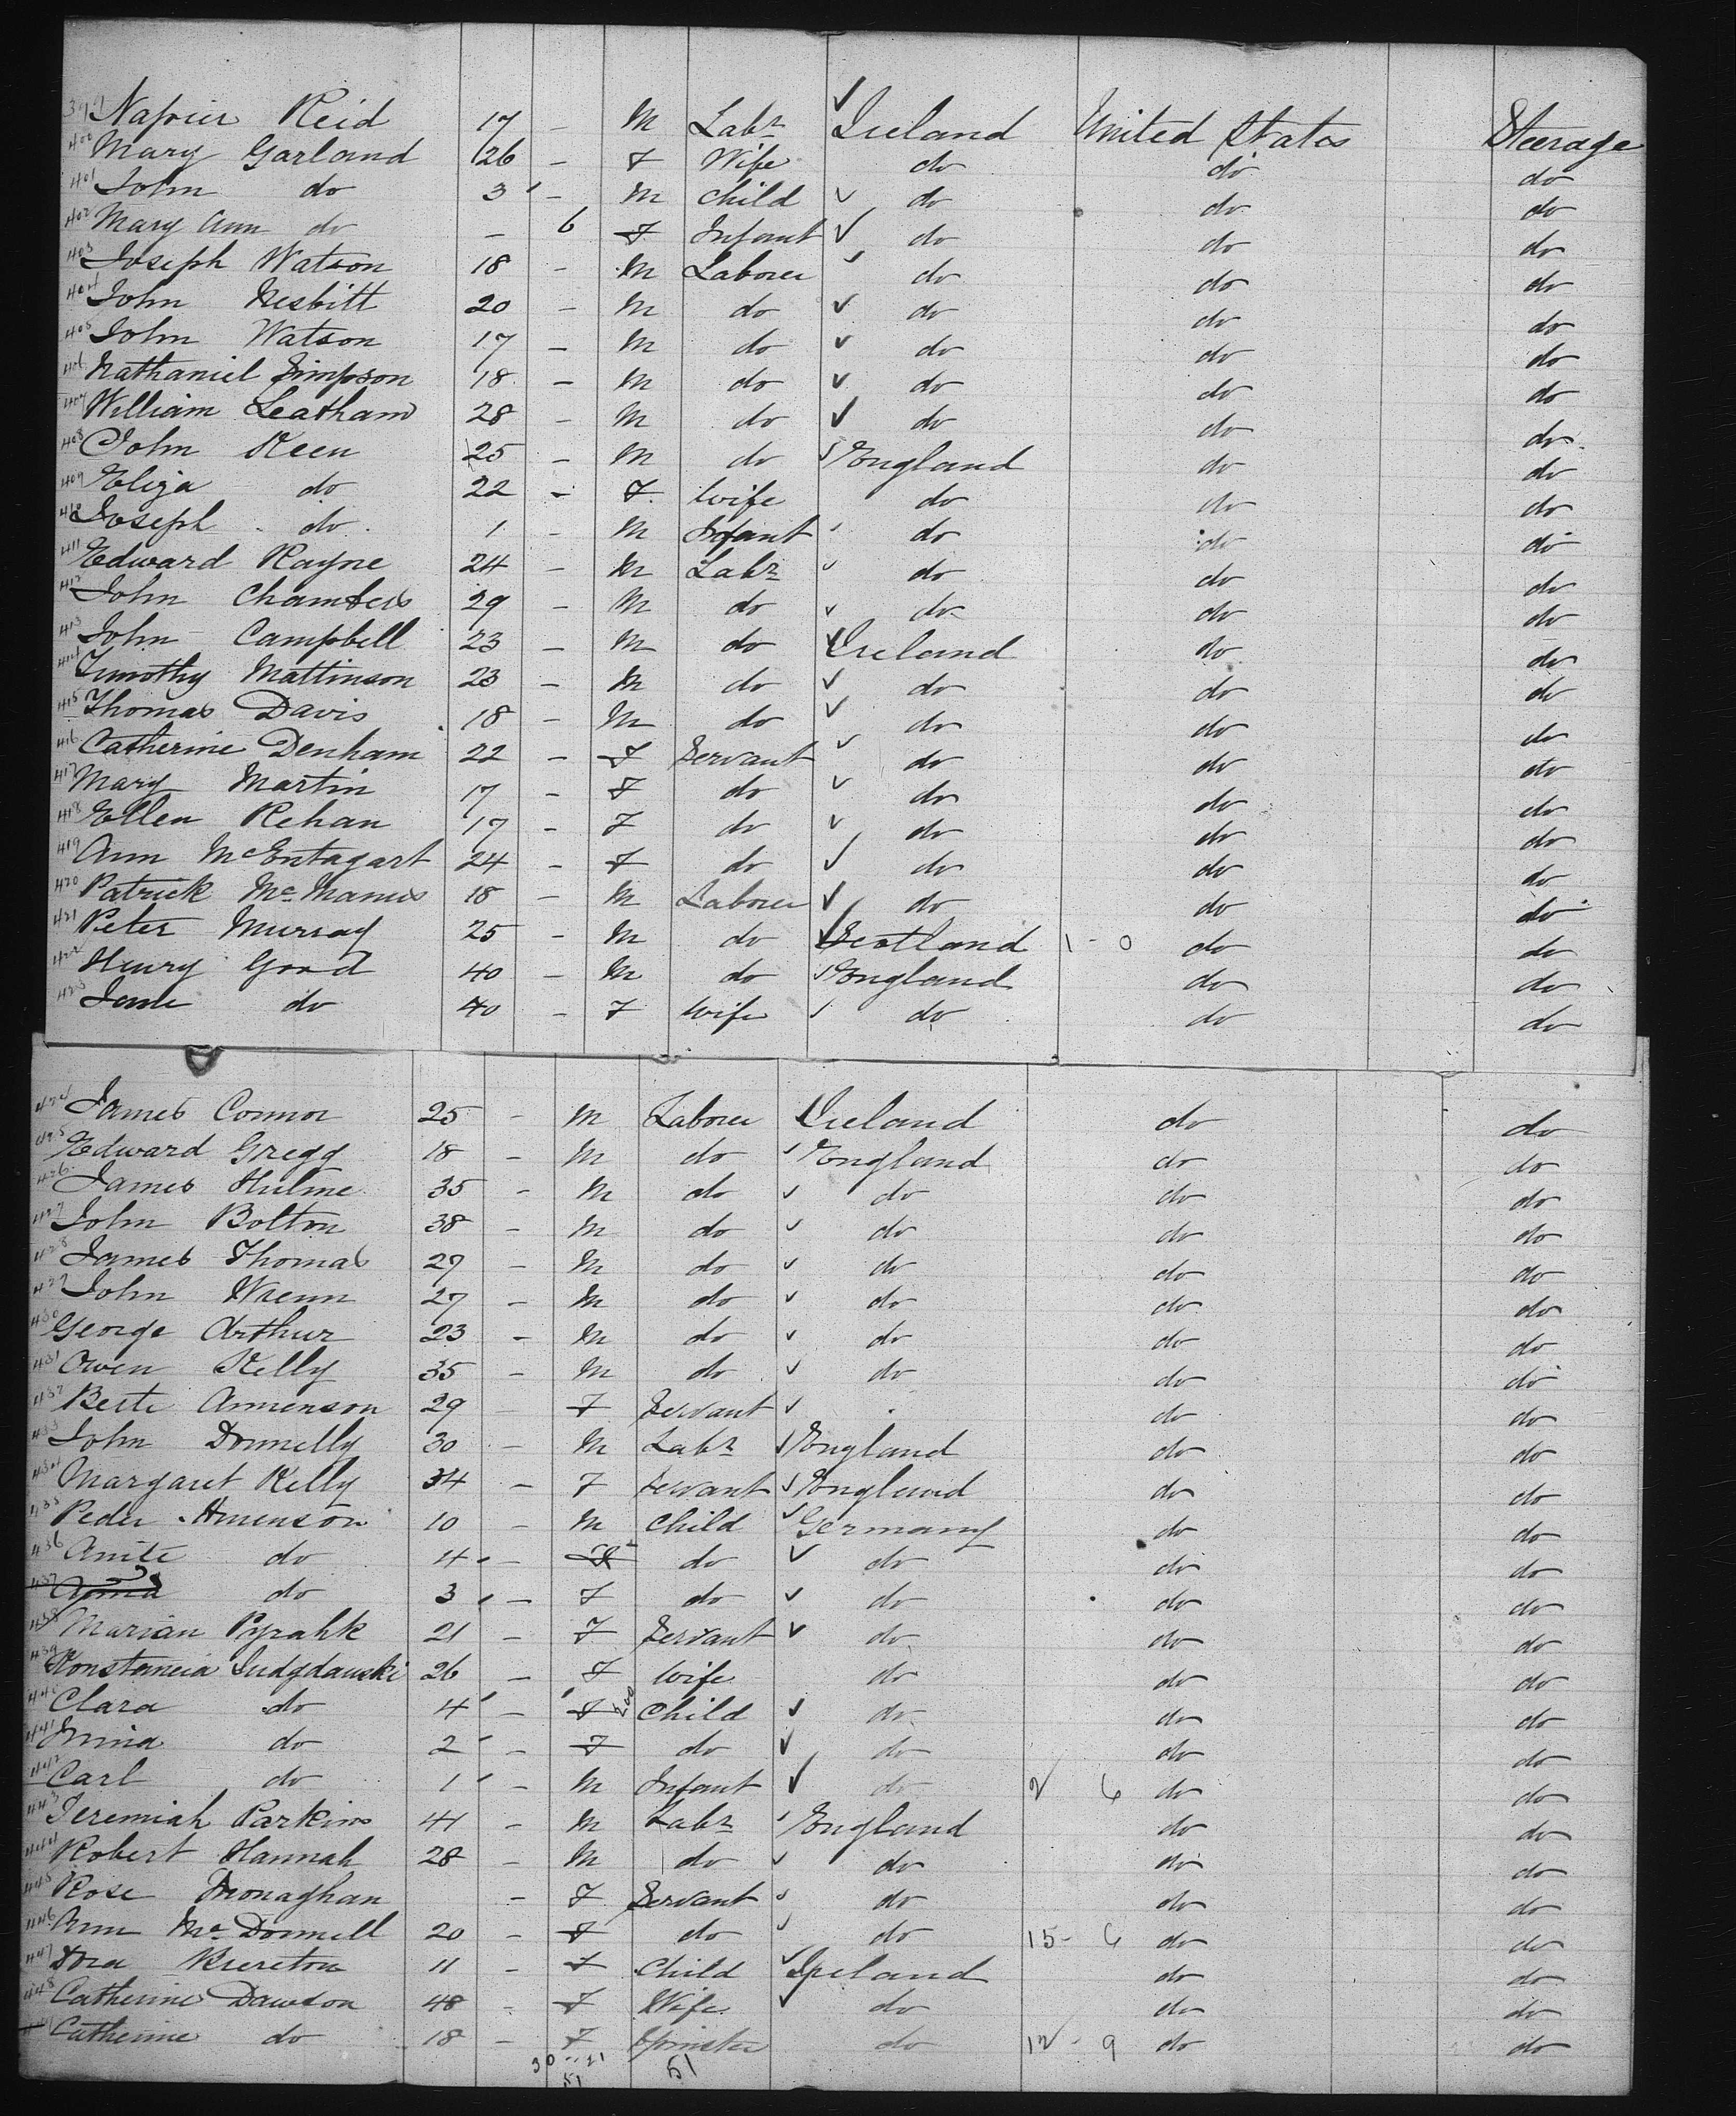 399 Napier Reid 17 - M Labr ✓ Ireland United States Steerage
400 Mary Garland 26 - F Wife do do do
401 John do 3 - M Child ✓ do do do
402 Mary Ann do - 6 F Infant ✓ do do do
403 Joseph Watson 18 - M Laborer ✓ do do do
404 John Nesbitt 20 - M do ✓ do do do
405 John Watson 17 - M do ✓ do do do
406 Nathaniel Simpson 18 - M do ✓ do do do
407 William Leatham 28 - M do ✓ do do do
408 John Keen 25 - M do ✓ England do do
409 Eliza do 22 - F Wife do do do
410 Joseph do 1 - M Infant ✓ do do do
411 Edward Rayne 24 - M Labr ✓ do do do
412 John Chambers 29 - M do ✓ do do do
413 John Campbell 23 - M do ✓ Ireland do do
414 Timothy Mattinson 23 - M do ✓ do do do
415 Thomas Davis 18 - M do ✓ do do do
416 Catherine Denham 22 - F Servant ✓ do do do
417 Mary Martin 17 - F do ✓ do do do
418 Ellen Rehan 17 - F do ✓ do do do
419 Ann McEntagart 24 - F do ✓ do do do
420 Patrick McManus 18 - M Laborer ✓ do do do
421 Peter Murray 25 - M do ✓ Scotland 1 - 0 do do
422 Henry Good 40 - M do ✓ England do do
423 Jane do 40 - F Wife ✓ do do do
424 James Connor 25 - M Laborer ✓ Ireland do do
425 Edward Gregg 18 - M do ✓ England do do
426 James Hulme 35 - M do ✓ do do do
427 John Bolton 38 - M do ✓ do do do
428 James Thomas 27 - M do ✓ do do do
429 John Wrenn 27 - M do ✓ do do do
430 George Arthur 23 - M do ✓ do do do
431 Owen Kelly 35 - M do ✓ do do do
432 Berte Amenson 29 F Servant ✓ do do
433 John Donnelly 30 - M Labr ✓ England do do
434 Margaret Kelly 34 - F Servant ✓ England do do
435 Peder Amenson 10 - M Child ✓ Germany do do
436 Anite do 4 - do ✓ do do do
437 Anna do 3 - F do ✓ do do do
438 Marian Pyrahk 21 - F Servant ✓ do do do
439 Konstancia Sudgdauski 26 - F Wife do do do
440 Clara do 4 - F Child ✓ do do do
441 Irmina do 2 - F do ✓ do do do
442 Carl do 1 - M Infant ✓ do 2 6 do do
443 Jeremiah Parkins 41 - M Labr ✓ England do do
444 Robert Hannah 28 - M do ✓ do do do
445 Rose Monaghan - F Servant ✓ do do do
446 Ann McDonnell 20 - F do ✓ do 15 - 6 do do
447 Dora Brereton 11 - F Child ✓ Ireland do do
448 Catherine Dawson 48 - F Wife ✓ do do do
449 Catherine do 18 - F Spinster do 12 - 9 do do
30 - 21 51
51